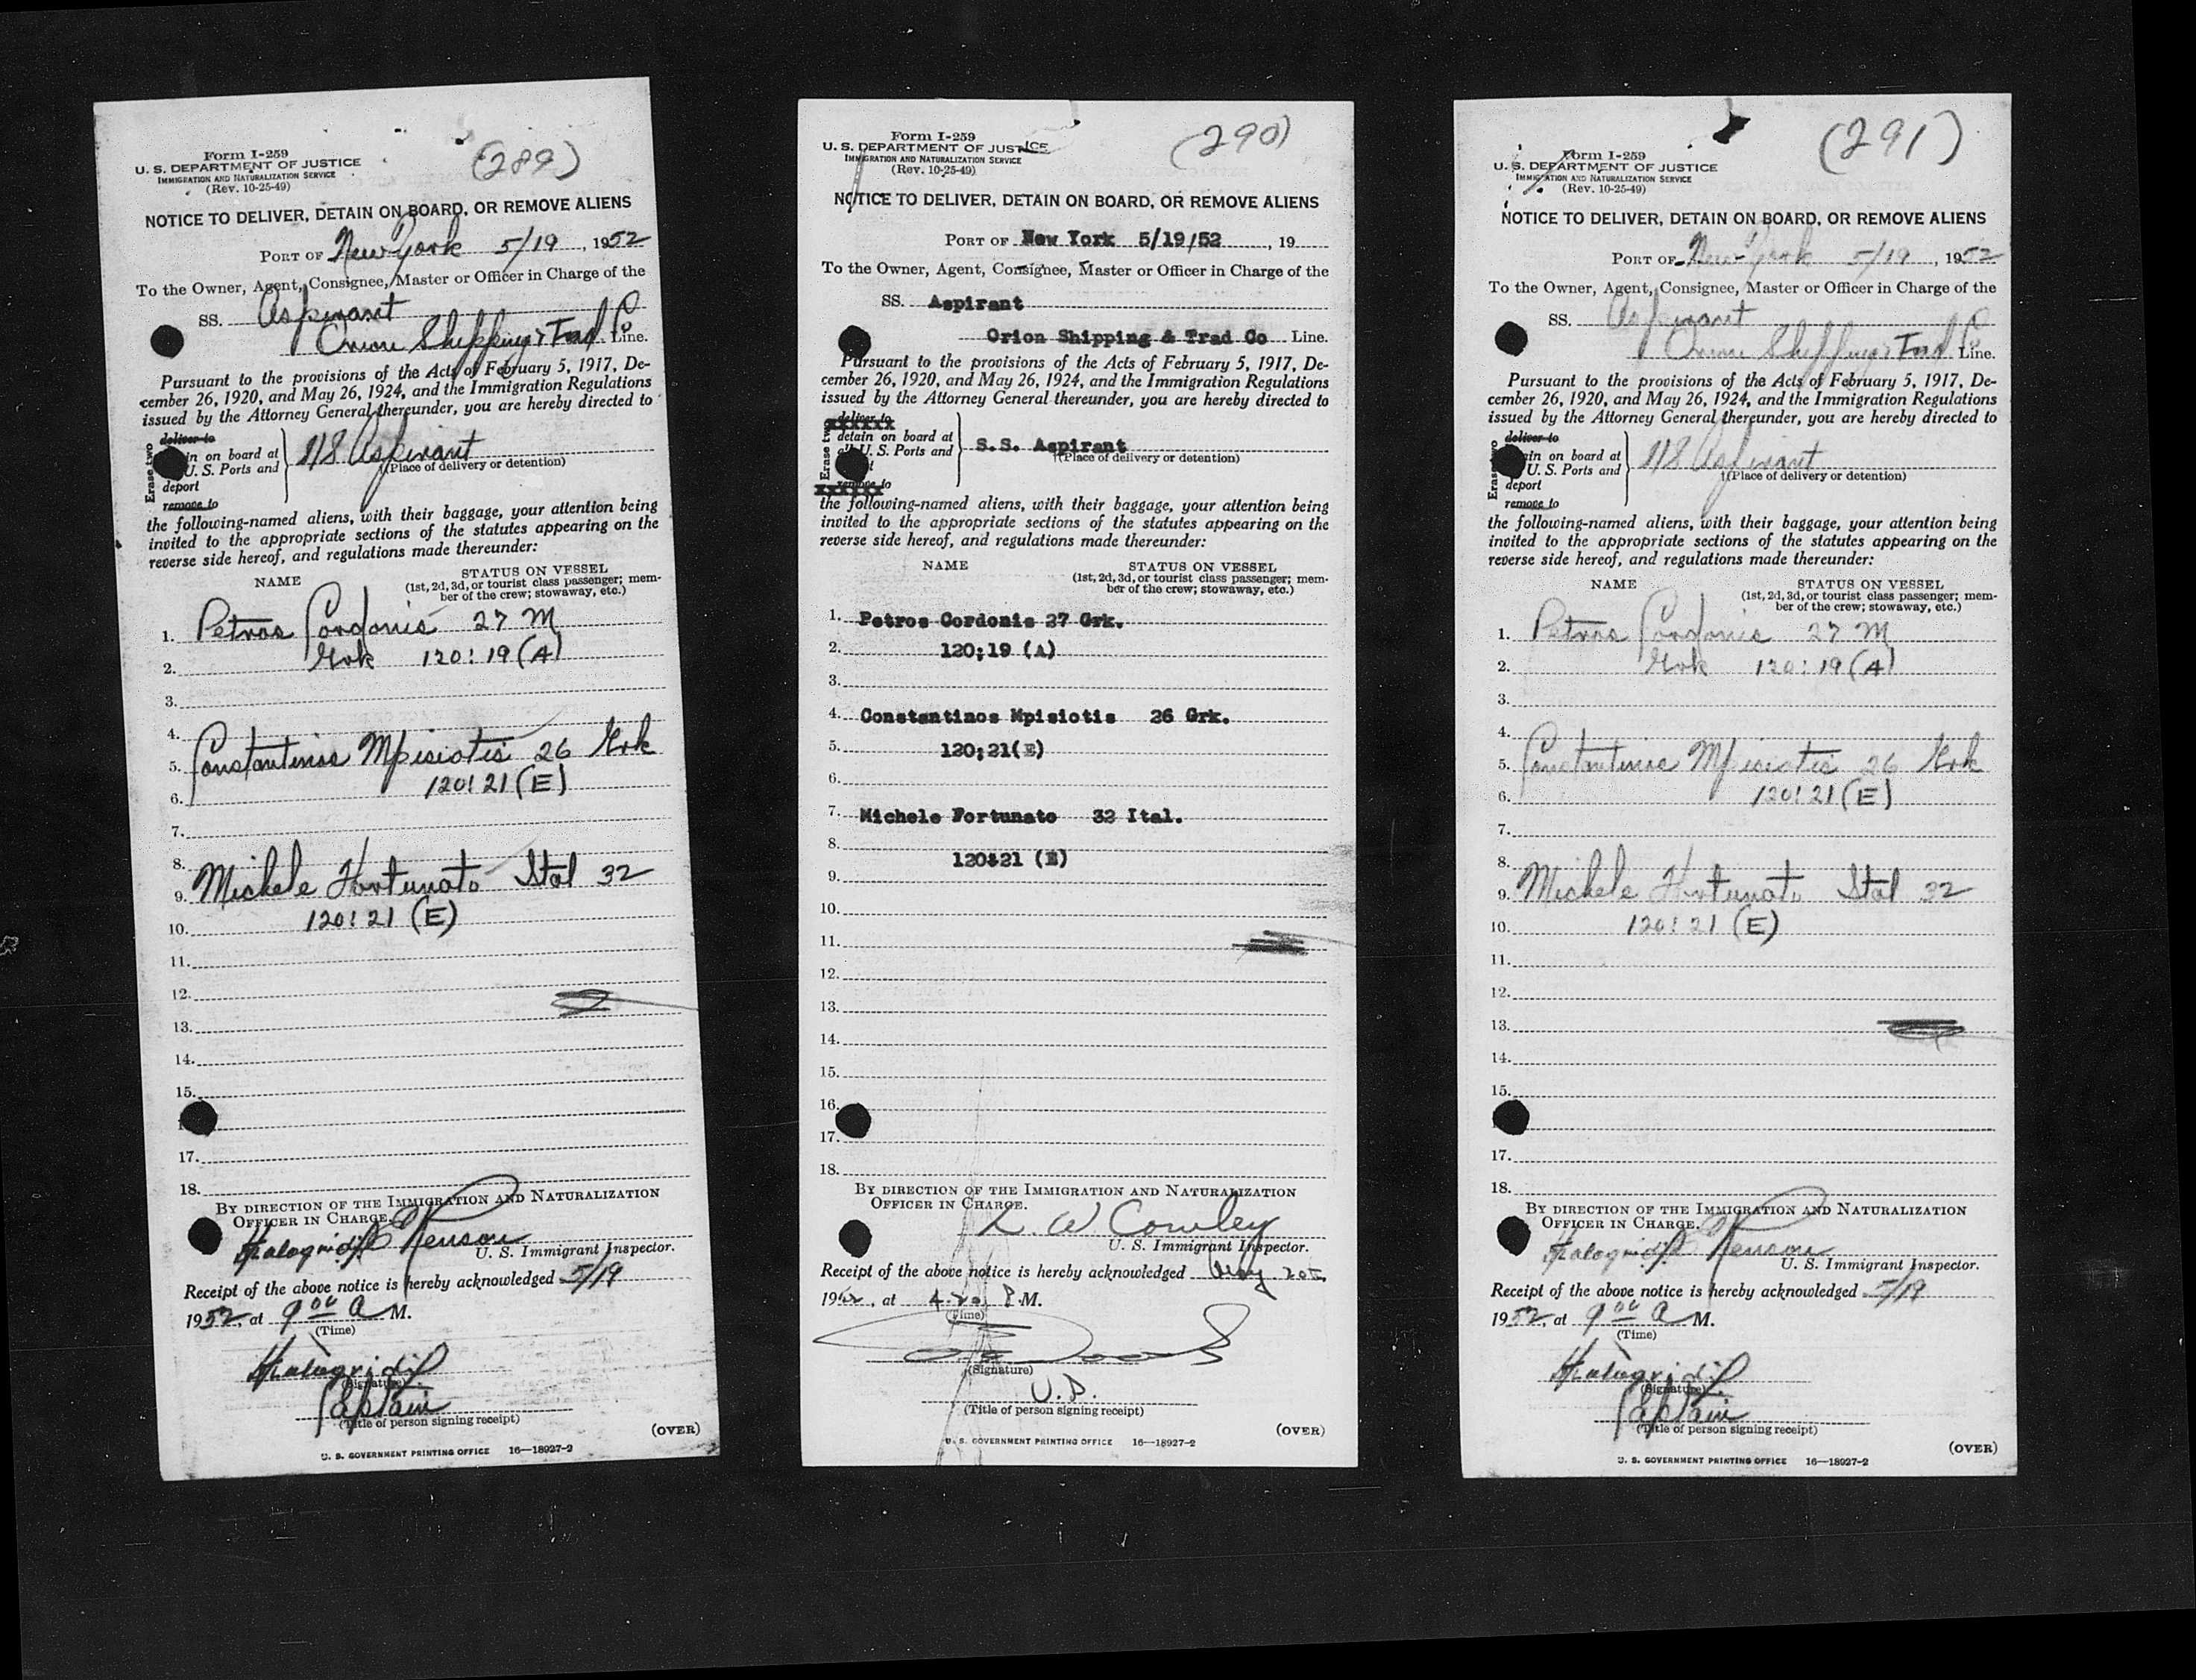 (289)
Form I-259
U. S. DEPARTMENT OF JUSTICE
IMMIGRATION AND NATURALIZATION SERVICE
(Rev. 10-25-49)
NOTICE TO DELIVER, DETAIN ON BOARD, OR REMOVE ALIENS
PORT OF New York 5/19, 1952
To the Owner, Agent, Consignee, Master or Officer in Charge of the
SS. Aspirant
Orion Shipping & Trad Co Line.
Pursuant to the provisions of the Acts of February 5, 1917, De-
cember 26, 1920, and May 26, 1924, and the Immigration Regulations
issued by the Attorney General thereunder, you are hereby directed to
Erase two
deliver to
in on board at
U. S. Ports and
deport
remove to
Aspirant
(Place of delivery or detention)
the following-named aliens, with their baggage, your attention being
invited to the appropriate sections of the statutes appearing on the
reverse side hereof, and regulations made thereunder:
NAME STATUS ON VESSEL
(1st, 2d, 3d, or tourist class passenger; mem-
ber of the crew; stowaway, etc.)
1. Petros Cordonis 27 M
2. Grk 120:19 (A)
3.
4.
5. Constantinos Mpisiotis 26 Grk
6. 120:21 (E)
7.
8.
9. Michele Fortunato Ital 32
10. 120:21 (E)
11.
12.
13.
14.
15.
17.
18.
BY DIRECTION OF THE IMMIGRATION AND NATURALIZATION
OFFICER IN CHARGE.
U. S. Immigrant Inspector.
Receipt of the above notice is hereby acknowledged 5/19
1952, at 9 00 A M.
(Time)
(Signature)
Captain
(Title of person signing receipt)
(OVER)
U. S. GOVERNMENT PRINTING OFFICE 16—18927-2
(290)
Form I-259
U. S. DEPARTMENT OF JUSTICE
IMMIGRATION AND NATURALIZATION SERVICE
(Rev. 10-25-49)
NOTICE TO DELIVER, DETAIN ON BOARD, OR REMOVE ALIENS
PORT OF New York 5/19/52, 19
To the Owner, Agent, Consignee, Master or Officer in Charge of the
SS. Aspirant
Orion Shipping & Trad Co Line.
Pursuant to the provisions of the Acts of February 5, 1917, De-
cember 26, 1920, and May 26, 1924, and the Immigration Regulations
issued by the Attorney General thereunder, you are hereby directed to
Erase tw
deliver to
detain on board at
U. S. Ports and
remove to
S.S. Aspirant
(Place of delivery or detention)
the following-named aliens, with their baggage, your attention being
invited to the appropriate sections of the statutes appearing on the
reverse side hereof, and regulations made thereunder:
NAME STATUS ON VESSEL
(1st, 2d, 3d, or tourist class passenger; mem-
ber of the crew; stowaway, etc.)
1. Petros Cordonis 27 Grk.
2. 120;19 (A)
3.
4. Constantinos Mpisiotis 26 Grk.
5. 120;21(E)
6.
7. Michele Fortunato 32 Ital.
8.
120&21 (E)
9.
10.
11.
12.
13.
14.
15.
16.
17.
18.
BY DIRECTION OF THE IMMIGRATION AND NATURALIZATION
OFFICER IN CHARGE.
L. W Cowley
U. S. Immigrant Inspector.
Receipt of the above notice is hereby acknowledged May 20
1952, at 4.20 P.M.
(Time)
(Signature)
(Title of person signing receipt)
(OVER)
U. S. GOVERNMENT PRINTING OFFICE 16—18927-2
(291)
Form I-259
U. S. DEPARTMENT OF JUSTICE
IMMIGRATION AND NATURALIZATION SERVICE
(Rev. 10-25-49)
NOTICE TO DELIVER, DETAIN ON BOARD, OR REMOVE ALIENS
PORT OF New York 5/19, 1952
To the Owner, Agent, Consignee, Master or Officer in Charge of the
SS. Aspirant
Orion Shipping & Trad Co Line.
Pursuant to the provisions of the Acts of February 5, 1917, De-
cember 26, 1920, and May 26, 1924, and the Immigration Regulations
issued by the Attorney General thereunder, you are hereby directed to
Erase
deliver to
in on board at
U. S. Ports and
deport
remove to
Aspirant
(Place of delivery or detention)
the following-named aliens, with their baggage, your attention being
invited to the appropriate sections of the statutes appearing on the
reverse side hereof, and regulations made thereunder:
NAME STATUS ON VESSEL
(1st, 2d, 3d, or tourist class passenger; mem-
ber of the crew; stowaway, etc.)
1. Petros Cordonis 27 M
2. Grk 120:19 (A)
3.
4.
5. Constantinos Mpisiotis 26 Grk
6. 120:21 (E)
7.
8.
9. Michele Fortunato Ital 32
10. 120:21 (E)
11.
12.
13.
14.
15.
17.
18.
BY DIRECTION OF THE IMMIGRATION AND NATURALIZATION
OFFICER IN CHARGE.
U. S. Immigrant Inspector.
Receipt of the above notice is hereby acknowledged 5/19
1952, at 9 00 A M.
(Time)
(Signature)
Captain
(Title of person signing receipt)
(OVER)
U. S. GOVERNMENT PRINTING OFFICE 16—18927-2